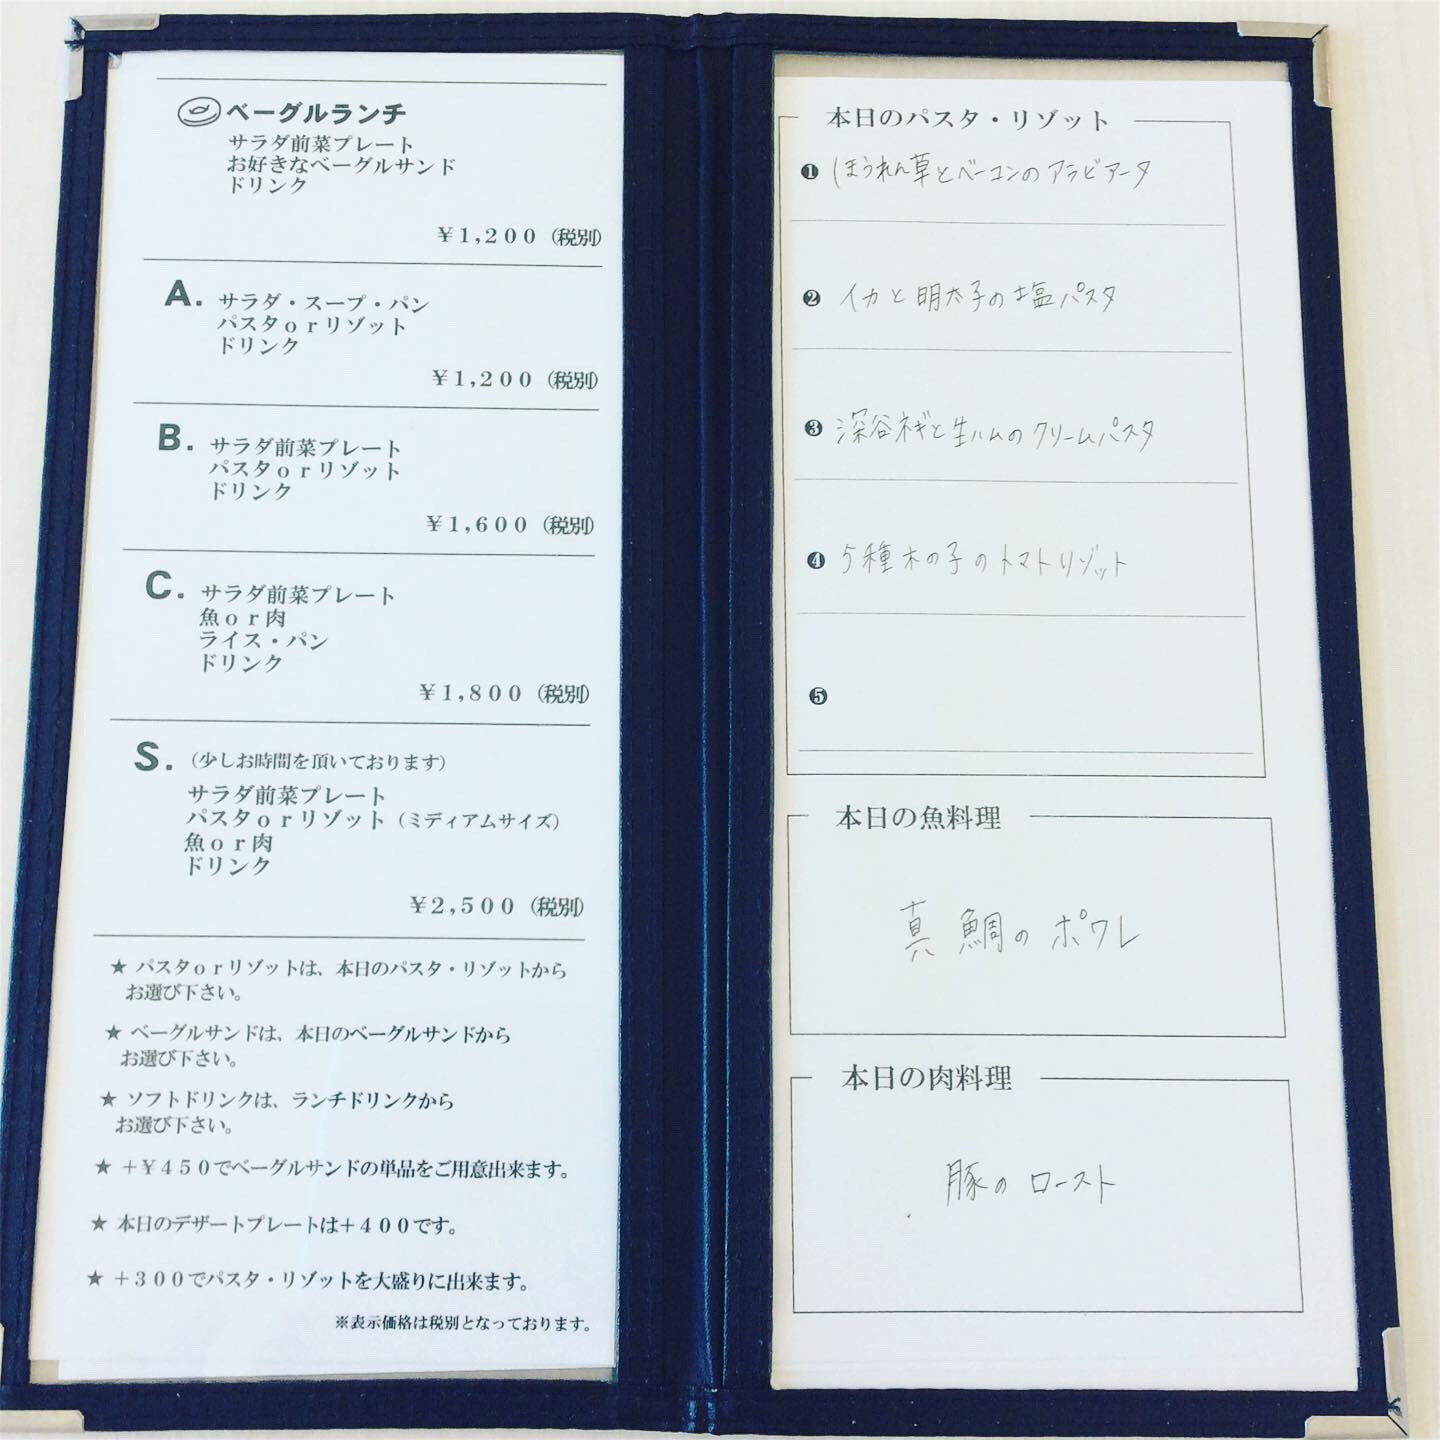 ベーグルランチ
サラダ前菜プレート
お好きなベーグルサンド
ドリンク
¥1,200（税別）
A.
サラダ・スープ・パン
パスタorリゾット
ドリンク
¥1,200（税別）
B.
サラダ前菜プレート
パスタorリゾット
ドリンク
¥1,600（税別）
C.
サラダ前菜プレート
魚or肉
ライス・パン
ドリンク
¥1,800（税別）
S.（少しお時間を頂いております）
サラダ前菜プレート
パスタorリゾット（ミディアムサイズ）
魚or肉
ドリンク
¥2,500（税別）
★ パスタorリゾットは、本日のパスタ・リゾットから
お選び下さい。
★ ベーグルサンドは、本日のベーグルサンドから
お選び下さい。
★ ソフトドリンクは、ランチドリンクから
お選び下さい。
★ +¥450でベーグルサンドの単品をご用意出来ます。
★ 本日のデザートプレートは+400です。
★ +300でパスタ・リゾットを大盛りに出来ます。
※表示価格は税別となっております。
本日のパスタ・リゾット
❶ ほうれん草とベーコンのアラビアータ
❷ イカと明太子の塩パスタ
❸ 深谷ネギと生ハムのクリームパスタ
❹ 5種木の子のトマトリゾット
❺
本日の魚料理
真鯛のポワレ
本日の肉料理
豚のロースト